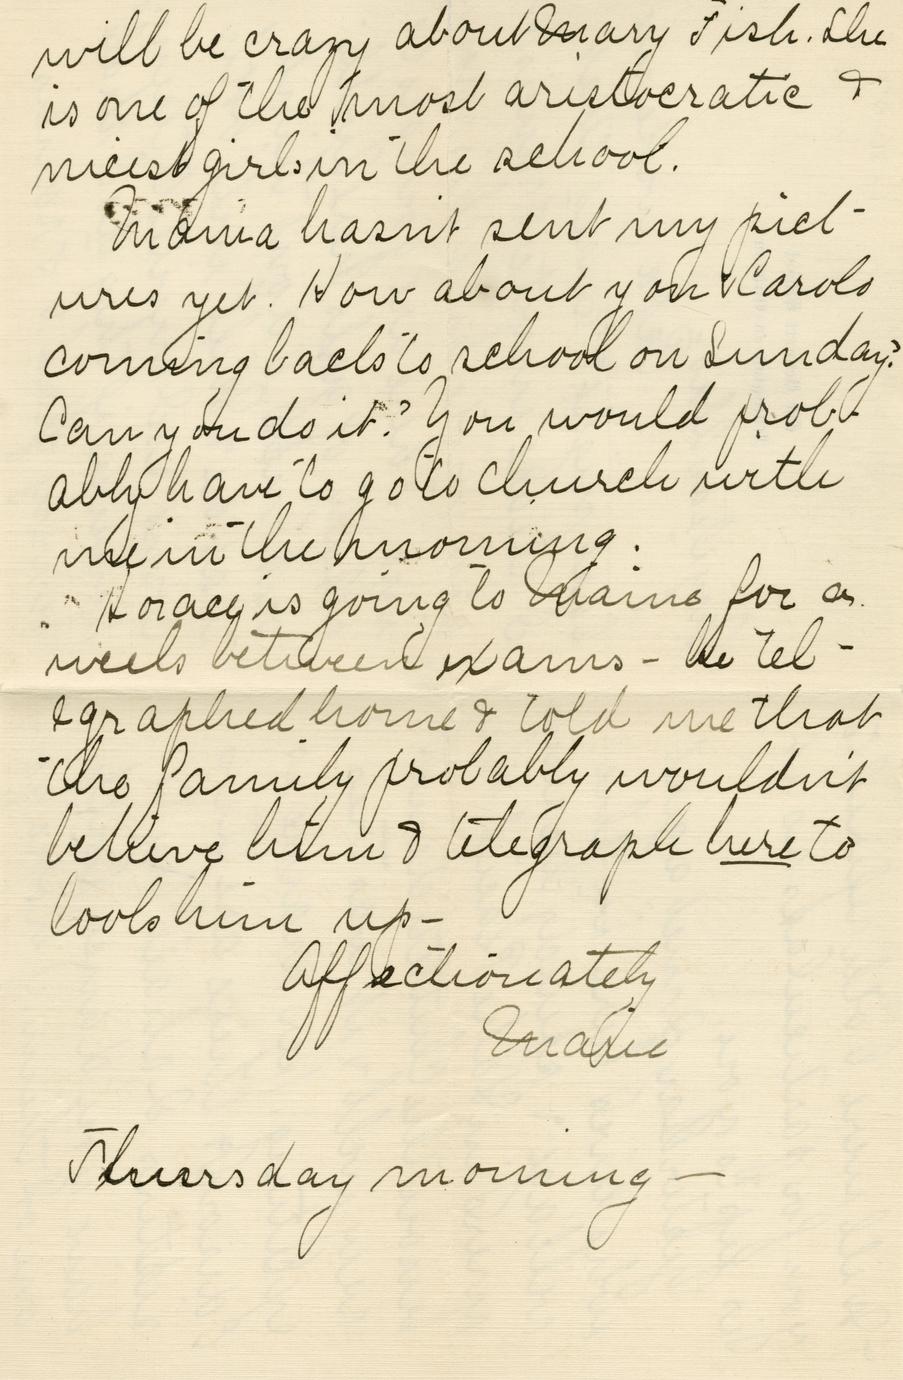 will be crazy about Mary Fish. She
is one of the most aristocratic &
nicest girls in the school.
Mama hasn't sent my pict-
ures yet. How about you & Carol
coming back to school on Sunday?
Can you do it? You would prob-
ably have to go to church with
me in the morning.
Horace is going to Maine for a
week between exams - he tel-
egraphed home & told me that
the family probably wouldn't
believe him & telegraph here to
look him up-
Affectionately
Marie
Thursday morning —